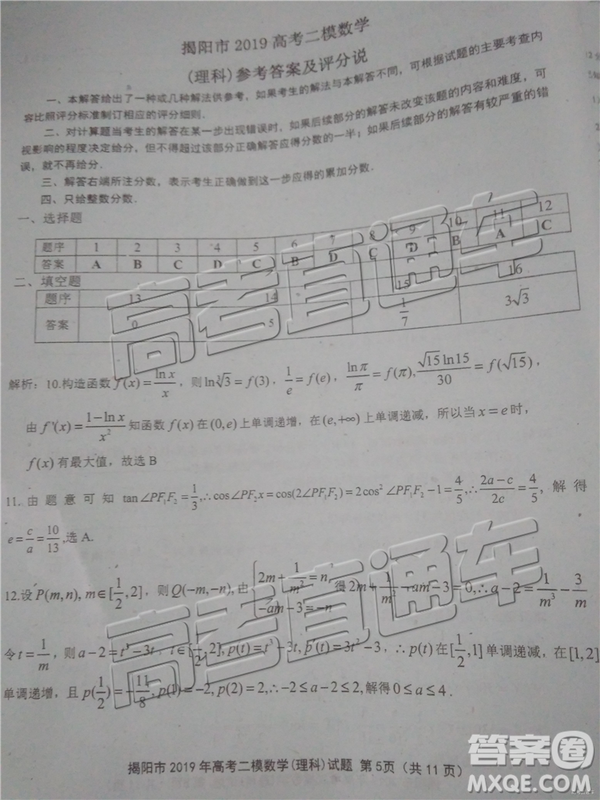 揭阳市2019高考二模数学
(理科)参考答案及评分说
一、本解答给出了一种或几种解法供参考,如果考生的解法与本解答不同,可根据试题的主要考查内
容比照评分标准制订相应的评分细则.
二、对计算题当考生的解答在某一步出现错误时,如果后续部分的解答未改变该题的内容和难度,可
视影响的程度决定给分,但不超过该部分正确解答应得分数的一半;如果后续部分的解答有较严重的错
误,就不再给分.
三、解答右端所注分数,表示考生正确做到这一步应得的累加分数.
四、只给整数分数.
一、选择题
题序 1 2 3 4 5 6 7 8 9 10 11 12
答案 A B C D C B D A C
二、填空题
题序 13 14 15 16
答案 0 5 1/7 3√3
解析:10.构造函数 f(x)=lnx/x,则ln∛3=f(3),1/e=f(e),lnπ/π=f(π),√15ln15/30=f(√15),
由 f'(x)=(1-lnx)/x² 知函数 f(x) 在(0,e)上单调递增,在(e,+∞)上单调递减,所以当 x=e 时,
f(x)有最大值,故选B
11.由题意可知 tan∠PF₁F₂=1/3,∴cos∠PF₂x=cos(2∠PF₁F₂)=2cos²∠PF₁F₂-1=4/5,∴(2a-c)/2c=4/5,解得
e=c/a=10/13,选A.
12.设P(m,n),m∈[1/2,2],则Q(-m,-n),由{2m+1/m²=n,-am-3=-n,得2m+1/m²-am-3=0,∴a-2=1/m³-3/m
令t=1/m,则a-2=t³-3t,t∈[1/2,2],p(t)=t³-3t,p'(t)=3t²-3,∴p(t)在[1/2,1]单调递减,在[1,2]
单调递增,且p(1/2)=-11/8,p(1)=-2,p(2)=2,∴-2≤a-2≤2,解得0≤a≤4.
高考直通车
高考直通车
高考直通车
揭阳市2019年高考二模数学(理科)试题 第5页(共11页)
答案圈
MXQE.COM